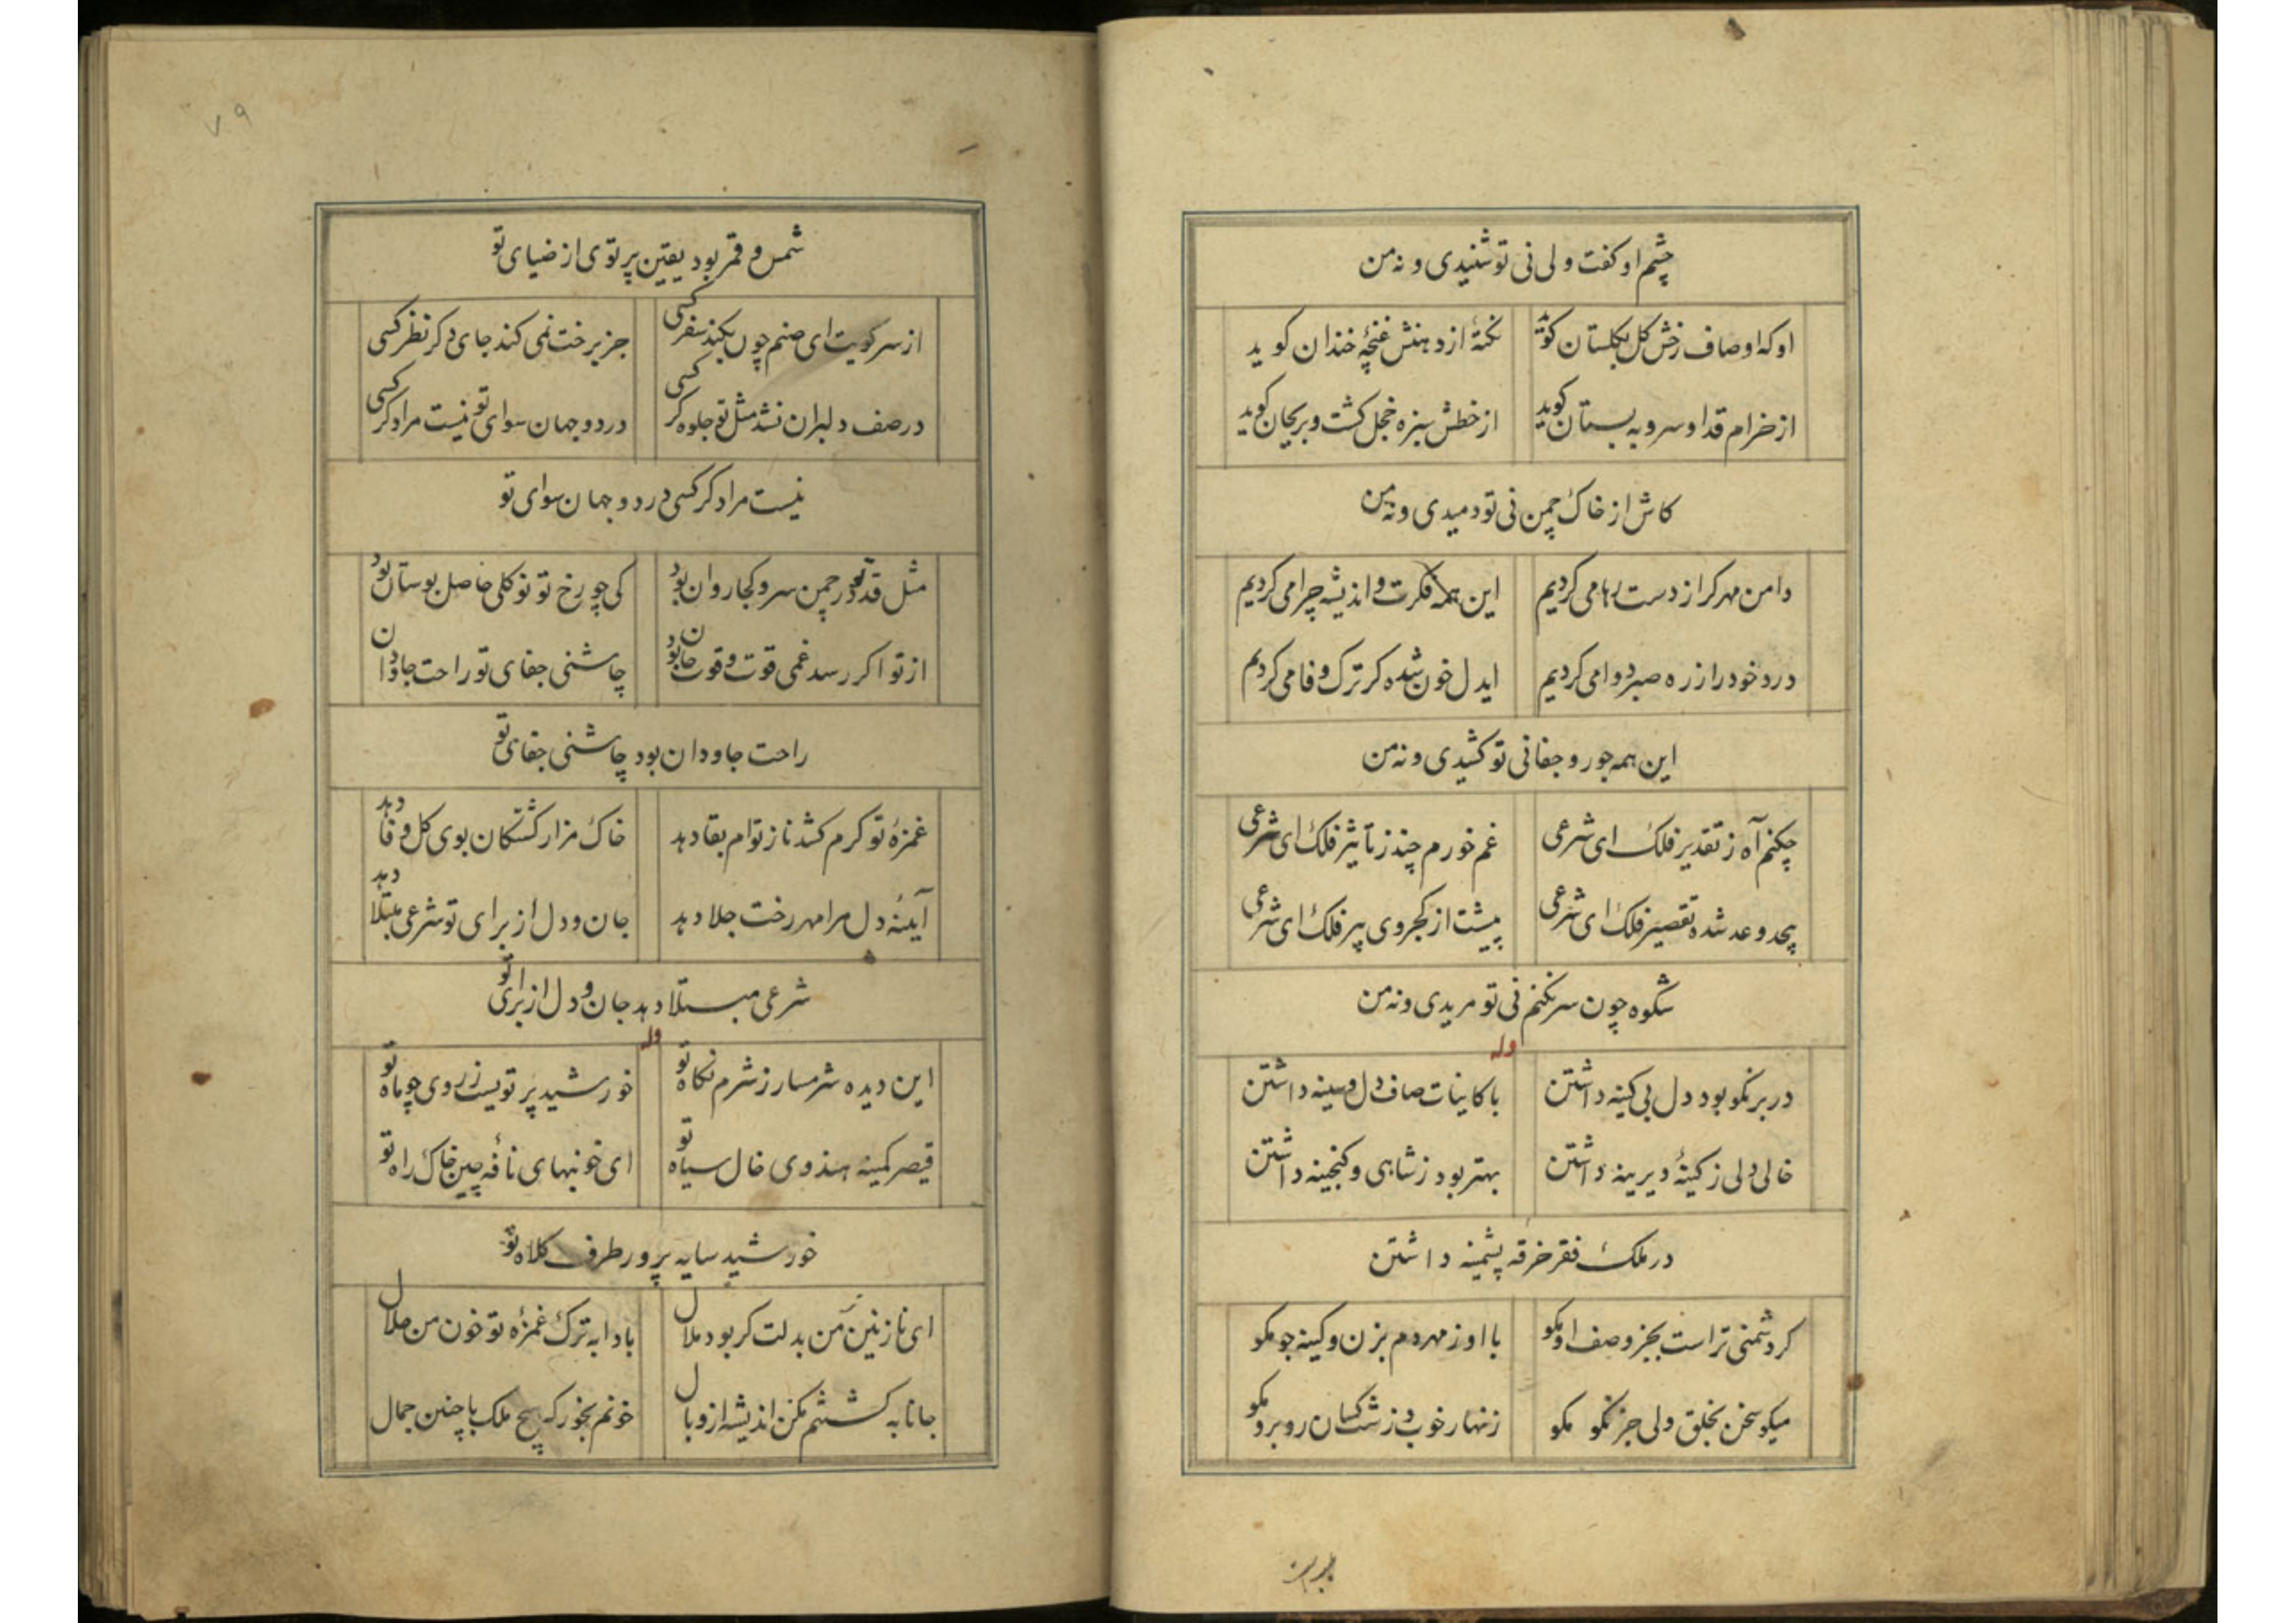 چشم او کفت ولی نی تو شنیدی و نه من
او که اوصاف رخش کل بکلستان کوید نکتهٔ از دهنش غنچهٔ خندان کوید
از خرام قد او سرو به بستان کوید از خطش سبزه خجل کشت و بریحان کوید
کاش از خاک چمن نی تو دمیدی و نه من
دامن مهر کر از دست رها می کردیم این همه فکرت و اندیشه چرا می کردیم
درد خود را ز ره صبر دوا می کردیم ایدل خون شده کر ترک وفا می کردیم
این همه جور و جفا نی تو کشیدی و نه من
چکنم آه ز تقدیر فلک ای شرعی غم خورم چند ز تاثیر فلک ای شرعی
بیحد و عد شده تقصیر فلک ای شرعی پیشت از کجروی پیر فلک ای شرعی
شکوه چون سر نکنم نی تو مریدی و نه من
وله
در بر نکو بود دل بی کینه داشتن با کاینات صاف دل و سینه داشتن
خالی دلی ز کینهٔ دیرینه داشتن بهتر بود ز شاهی و کنجینه داشتن
در ملک فقر خرقه پشمینه داشتن
کر دشمنی تراست بجز وصف او مکو با او ز مهر دم بزن و کینه جو مکو
میکو سخن بخلق ولی جز نکو مکو زنهار خوب و زشت کسان روبرو مکو
۷۹
شمس و قمر بود یقین پرتوی از ضیای تو
از سر کویت ای صنم چون بکند سفر کسی جز برخت نمی کند جای دکر نظر کسی
در صف دلبران نشد مثل تو جلوه کر کسی در دو جهان سوای تو نیست مرا دکر کسی
نیست مرا دکر کسی در دو جهان سوای تو
مثل قد تو در چمن سرو کجا روان بود کی چو رخ تو نو کلی حاصل بوستان بود
از تو اکر رسد غمی قوت و قوت جان بود چاشنی جفای تو راحت جاودان
راحت جاودان بود چاشنی جفای تو
غمزهٔ تو کرم کشد ناز توام بقا دهد خاک مزار کشتکان بوی کل وفا دهد
آینهٔ دل مرا مهر رخت جلا دهد جان و دل از برای تو شرعی مبتلا دهد
شرعی مبتلا دهد جان و دل از برای تو
وله
این دیده شرمسار ز شرم نکاه تو خورشید پرتویست ز روی چو ماه تو
قیصر کمینه هندوی خال سیاه تو ای خونبهای نافه چین خاک راه تو
خورشید سایه پرور طرف کلاه تو
ای نازنین من بدلت کر بود ملال بادا به ترک غمزهٔ تو خون من حلال
جانا به کشتنم مکن اندیشه از وبال خونم بخور که هیچ ملک با چنین جمال